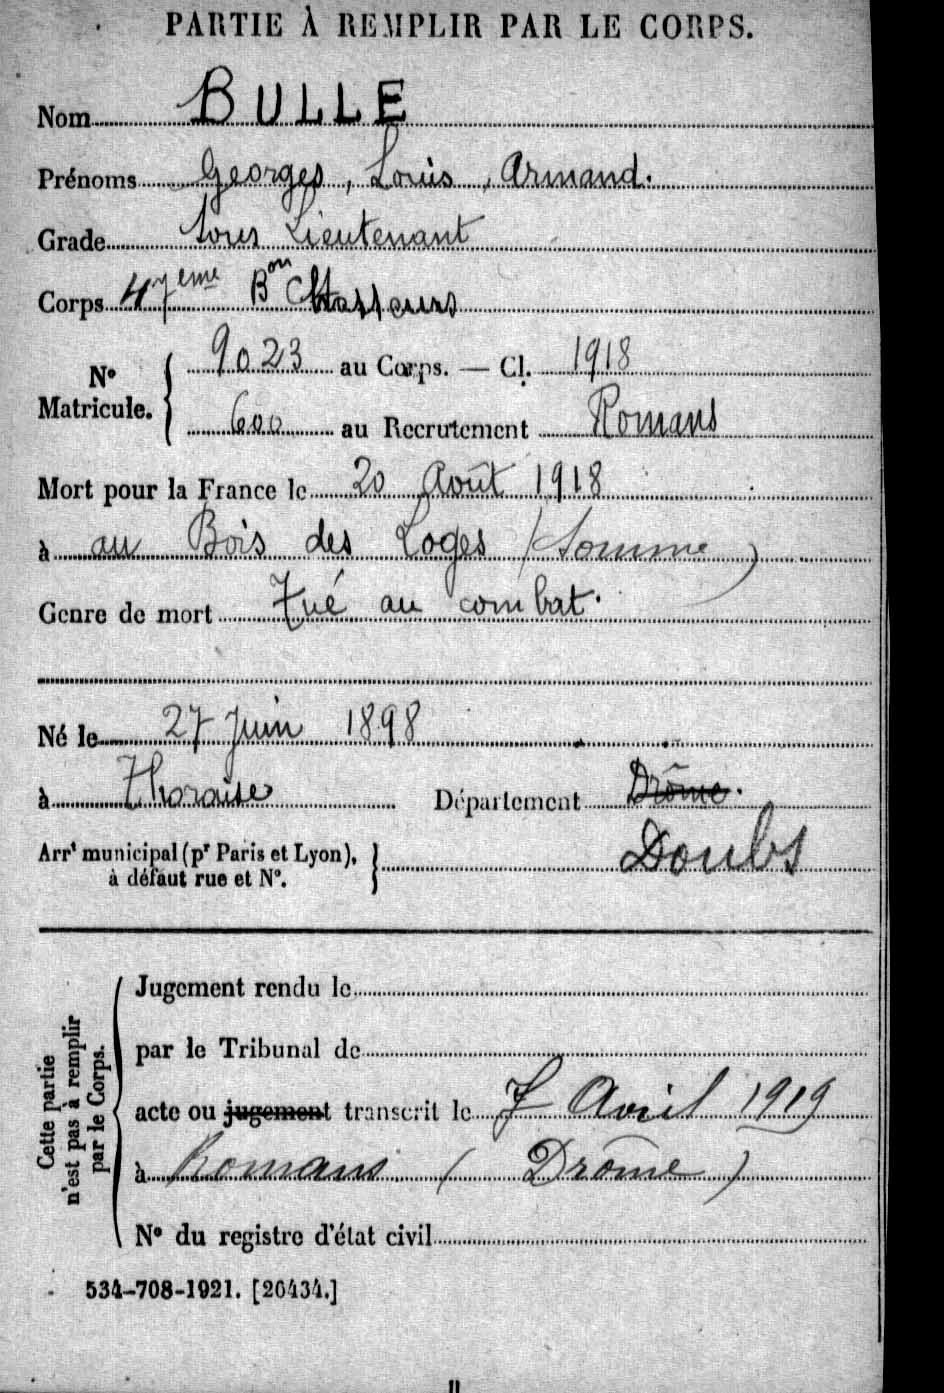 PARTIE À REMPLIR PAR LE CORPS.
Nom BULLE
Prénoms Georges, Louis, Armand.
Grade Sous Lieutenant
Corps 47eme Bon Chasseurs
No Matricule. { 9023 au Corps. — Cl. 1918
600 au Recrutement Romans
Mort pour la France le 20 Août 1918
à au Bois des Loges (Somme)
Genre de mort Tué au combat.
Né le 27 Juin 1898
à Thoraise Département Drôme.
Arrt municipal (pr Paris et Lyon), à défaut rue et No. } Doubs
Cette partie n'est pas à remplir par le Corps.
Jugement rendu le
par le Tribunal de
acte ou jugement transcrit le 7 Avril 1919
à Romans (Drôme)
No du registre d'état civil
534-708-1921. [26434.]